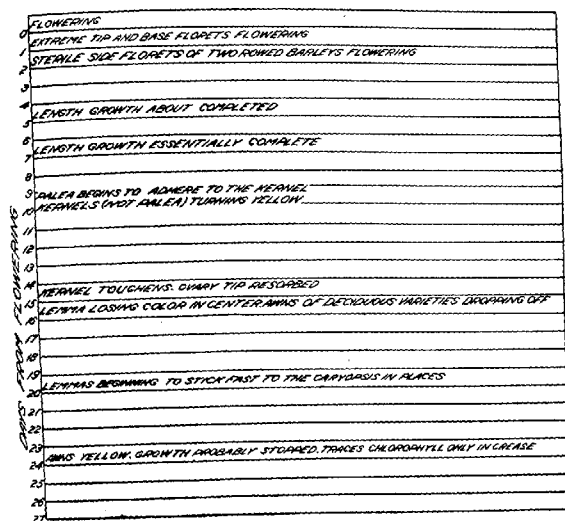 FLOWERING
0
EXTREME TIP AND BASE FLORETS FLOWERING
1
STERILE SIDE FLORETS OF TWO ROWED BARLEYS FLOWERING
2
3
4
LENGTH GROWTH ABOUT COMPLETED
5
6
LENGTH GROWTH ESSENTIALLY COMPLETE
7
8
9
PALEA BEGINS TO ADHERE TO THE KERNEL
KERNELS (NOT PALEA) TURNING YELLOW
10
11
12
13
14
KERNEL TOUGHENS. OVARY TIP RESORBED
15
LEMMA LOSING COLOR IN CENTER AWNS OF DECIDUOUS VARIETIES DROPPING OFF
16
17
18
19
LEMMAS BEGINNING TO STICK FAST TO THE CARYOPSIS IN PLACES
20
21
22
23
AWNS YELLOW. GROWTH PROBABLY STOPPED. TRACES CHLOROPHYLL ONLY IN CREASE
24
25
26
27
DAYS FROM FLOWERING